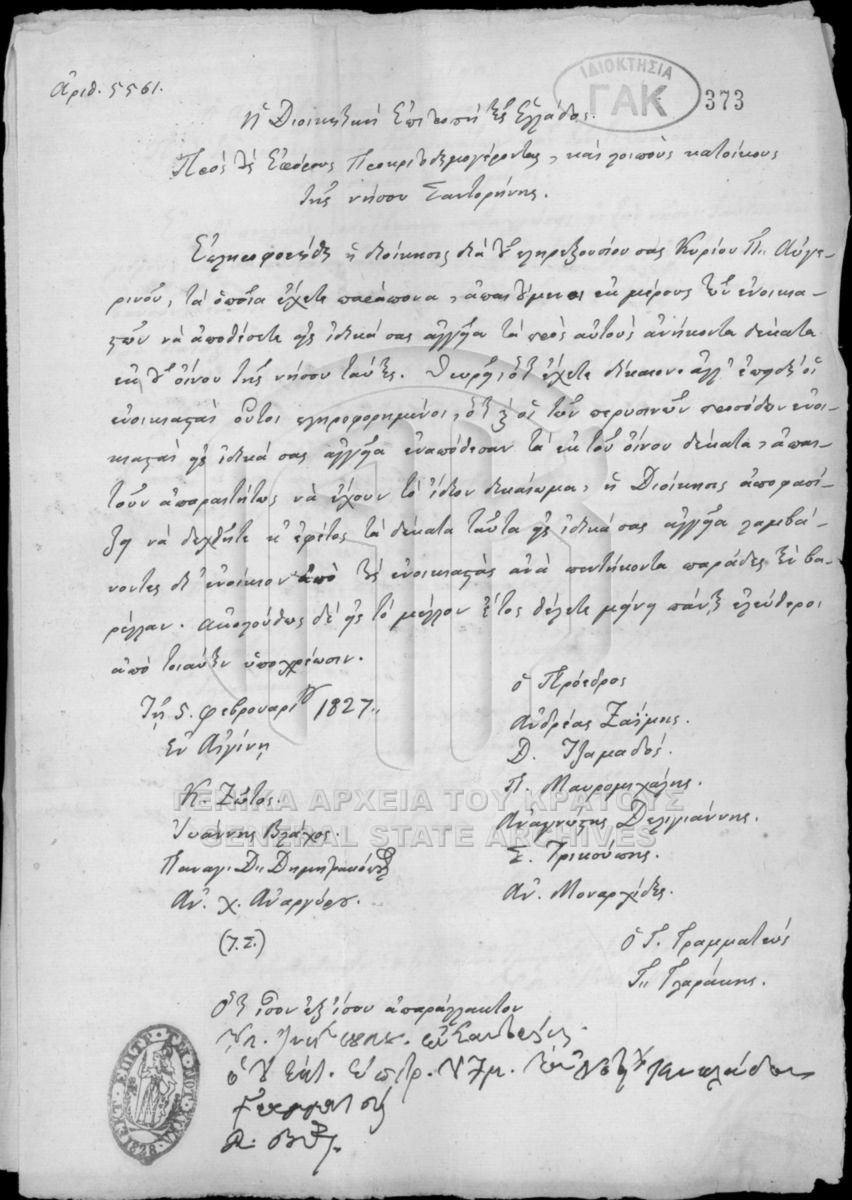 ἀριθ. 5561.
ΙΔΙΟΚΤΗΣΙΑ
ΓΑΚ
373
Ἡ Διοικητικὴ Ἐπιτροπὴ τῆς Ἑλλάδος.
Πρὸς τοὺς Ἐφόρους Προκριτοδημογέροντας, καὶ λοιποὺς κατοίκους
τῆς νήσου Σαντορήνης.
Ἐπληροφορήθη ἡ διοίκησις διὰ τοῦ πληρεξουσίου σας Κυρίου Π. Αὐγε-
ρινοῦ, τὰ ὁποῖα ἔχετε παράπονα, ἀπαιτούμενοι ἐκ μέρους τῶν ἐνοικια-
στῶν νὰ ἀποθέσετε εἰς ἰδικά σας ἀγγεῖα τὰ πρὸς αὐτοὺς ἀνήκοντα δέκατα
ἐκ τοῦ οἴνου τῆς νήσου ταύτης. Θεωρεῖ, ὅτι ἔχετε δίκαιον· ἀλλ' ἐπειδὴ οἱ
ἐνοικιασταὶ οὗτοι πληροφορημένοι, ὅτι καὶ οἱ τῶν περυσινῶν προσόδων ἐνοι-
κιασταὶ εἰς ἰδικά σας ἀγγεῖα ἐναπόθεσαν τὰ ἐκ τοῦ οἴνου δέκατα, ἀπαι-
τοῦν ἀπαραιτήτως νὰ ἔχουν τὸ ἴδιον δικαίωμα, ἡ Διοίκησις ἀποφασί-
ζει νὰ δεχθῆτε κ' ἐφέτος τὰ δέκατα ταῦτα εἰς ἰδικά σας ἀγγεῖα λαμβά-
νοντες δι' ἐνοίκιον ἀπὸ τοὺς ἐνοικιαστὰς ἀνὰ πεντήκοντα παράδες τὴν βα-
ρέλλαν. ἀκολούθως δὲ εἰς τὸ μέλλον ἔτος θέλετε μένει πάντη ἐλεύθεροι
ἀπὸ τοιαύτην ὑποχρέωσιν.
Τῇ 5 φεβρουαρίου 1827
Ἐν Αἰγίνῃ
ὁ Πρόεδρος
Ἀνδρέας Ζαΐμης.
Δ. Τζαμαδός.
Π. Μαυρομιχάλης.
Ἀναγνώστης Δεληγιάννης.
Σ. Τρικούπης.
Ἀν. Μοναρχίδης.
Κ. Ζώτος.
Ἰωάννης Βλάχος.
Παναγ. Δ. Δημητρακόπουλος
Ἀν. χ. Ἀναργύρου.
(Τ.Σ.)
ὁ Γ. Γραμματεὺς
Γ. Γλαράκης.
Ὅτι ἴσον ἐξ ἴσου ἀπαράλλακτον
ΓΕΝΙΚΑ ΑΡΧΕΙΑ ΤΟΥ ΚΡΑΤΟΥΣ
GENERAL STATE ARCHIVES
1828